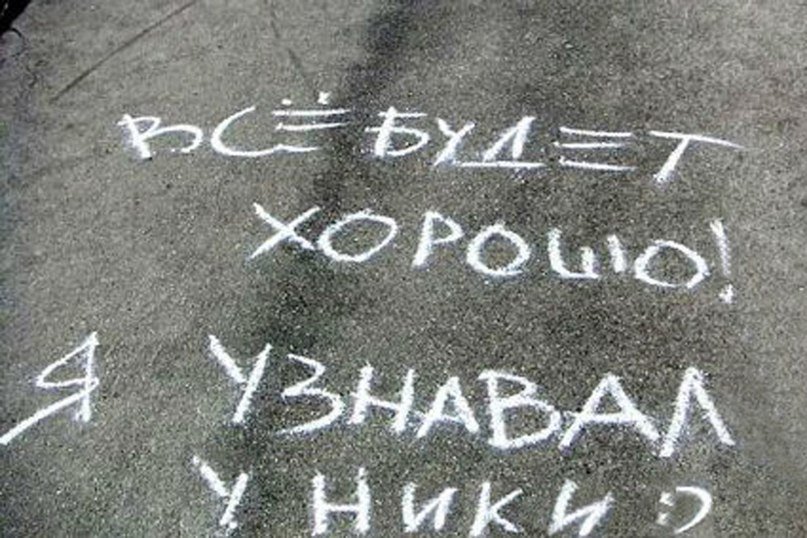 ВСЁ БУДЕТ
ХОРОШО!
Я УЗНАВАЛ
У НИКИ :)